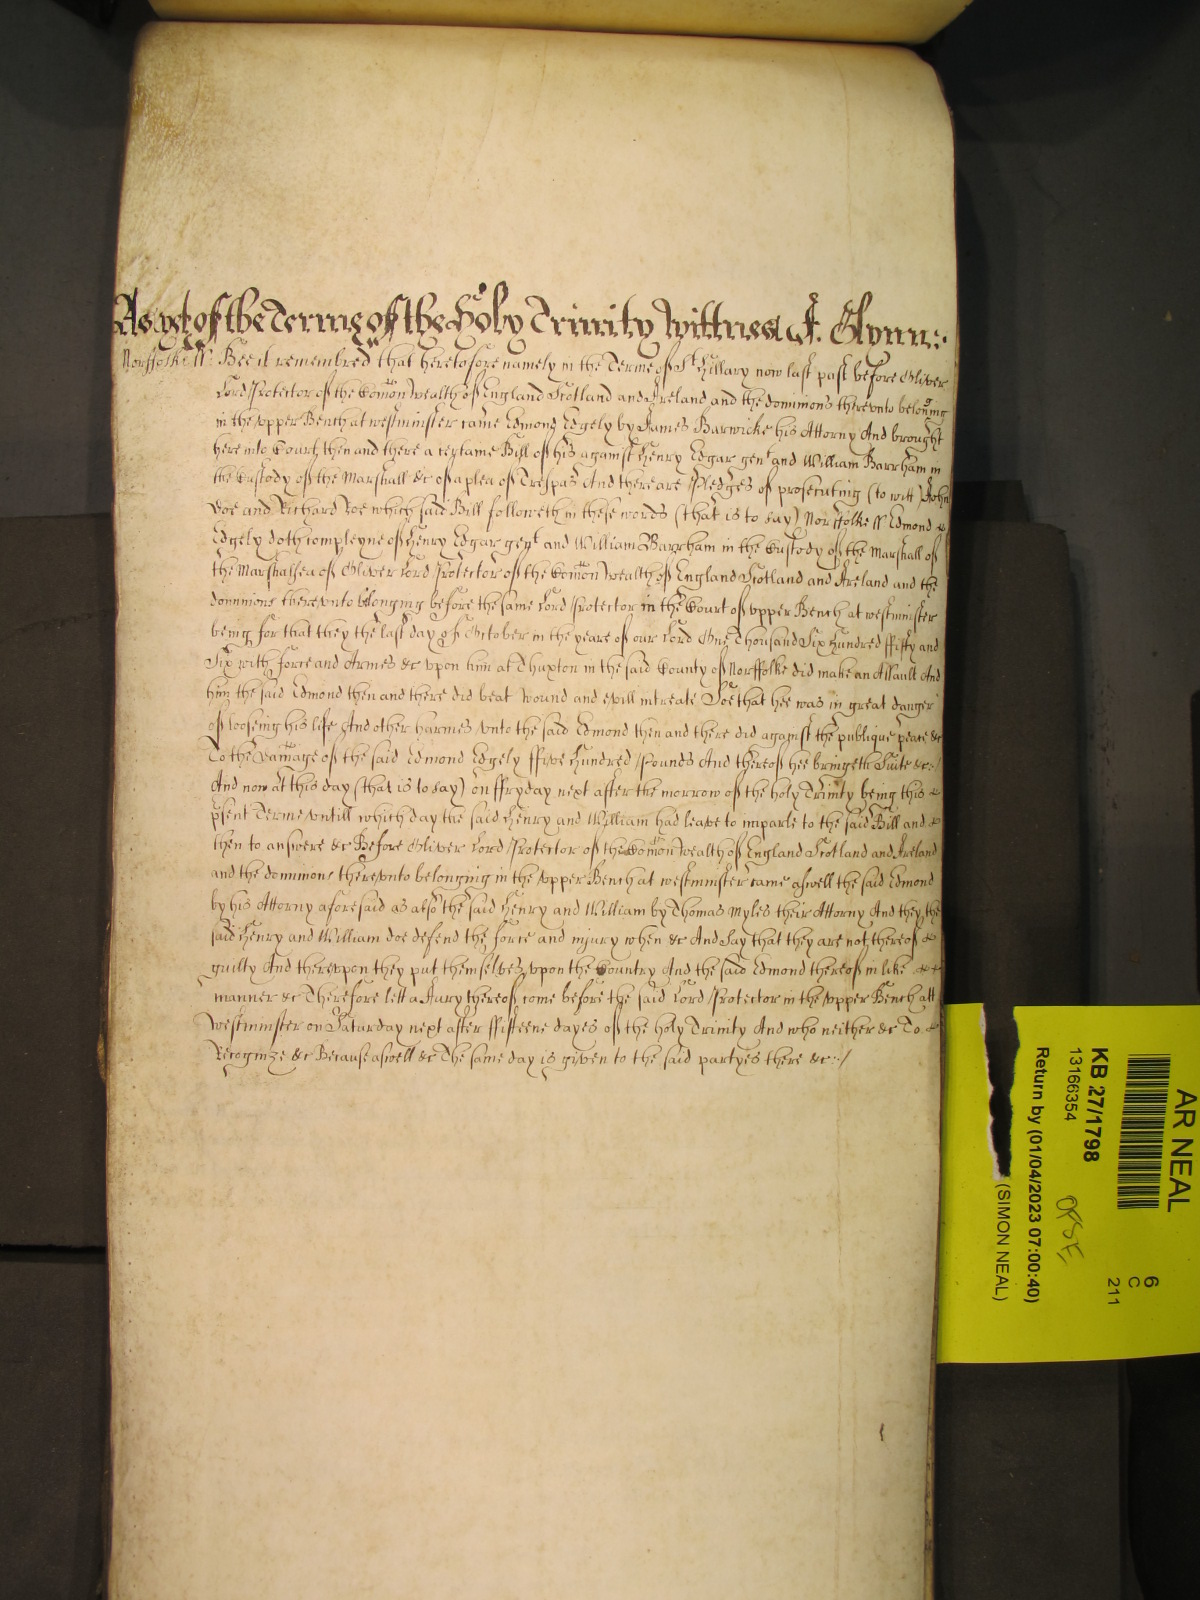 As yet of the Terme of the Holy Trinity Wittnes J. Glynn:.
Norffolke ss. Bee it remembred that heretofore namely in the Terme of St Hillary now last past before Oliver
Lord Protector of the Comon Wealth of England Scotland and Ireland and the dominions therevnto beloning
in the vpper Bench at westminister came Edmond Edgely by James Barwicke his Attorny And brought
here into Court then and there a certaine Bill of his against Henry Edgar gent and William Barrham in
the Custody of the Marshall &c of a plea of Trespas And there are Pledges of prosecuting (to witt) John
Doe and Richard Roe which said Bill followeth in these words (that is to say) Norffolke ss Edmond
Edgely doth compleyne of Henry Edgar gent and William Barrham in the Custody of the Marshall of
the Marshalsea of Oliver Lord Protector of the Comon Wealth of England Scotland and Ireland and the
dominions therevnto belonging before the same Lord Protector in the Court of vpper Bench at westminster
being for that they the last day of October in the yeare of our Lord One Thousand Six hundred ffifty and
Six with force and Armes &c vpon him at Thuxton in the said County of Norffolke did make an Assault And
him the said Edmond then and there did beat wound and evill intreate Soe that hee was in great danger
of looseing his life And other harmes vnto the said Edmond then and there did against the publique peace &c
To the Damage of the said Edmond Edgely ffive hundred Pounds And thereof hee bringeth Suite &c:/
And now at this day (that is to say) on ffryday next after the morrow of the holy Trinity being this
psent Terme vntill which day the said Henry and William had leave to imparle to the said Bill and
then to answere &c Before Oliver Lord Protector of the Comon Wealth of England Scotland and Ireland
and the dominions therevnto belonging in the vpper Bench at westminster came aswell the said Edmond
by his Attorny aforesaid as also the said Henry and William by Thomas Myles their Attorny And they the
said Henry and William doe defend the force and injury when &c And Say that they are not thereof
guilty And therevpon they put themselves vpon the Country And the said Edmond thereof in like
manner &c Therefore lett a Jury thereof come before the said Lord Protector in the vpper Bench att
Westminster on Saturday next after ffifteene dayes of the holy Trinity And who neither &c To
Recognize &c Because aswell &c The same day is given to the said partyes there &c:/
AR NEAL
6
C
211
KB 27/1798
13166354
Return by (01/04/2023 07:00:40)
(SIMON NEAL)